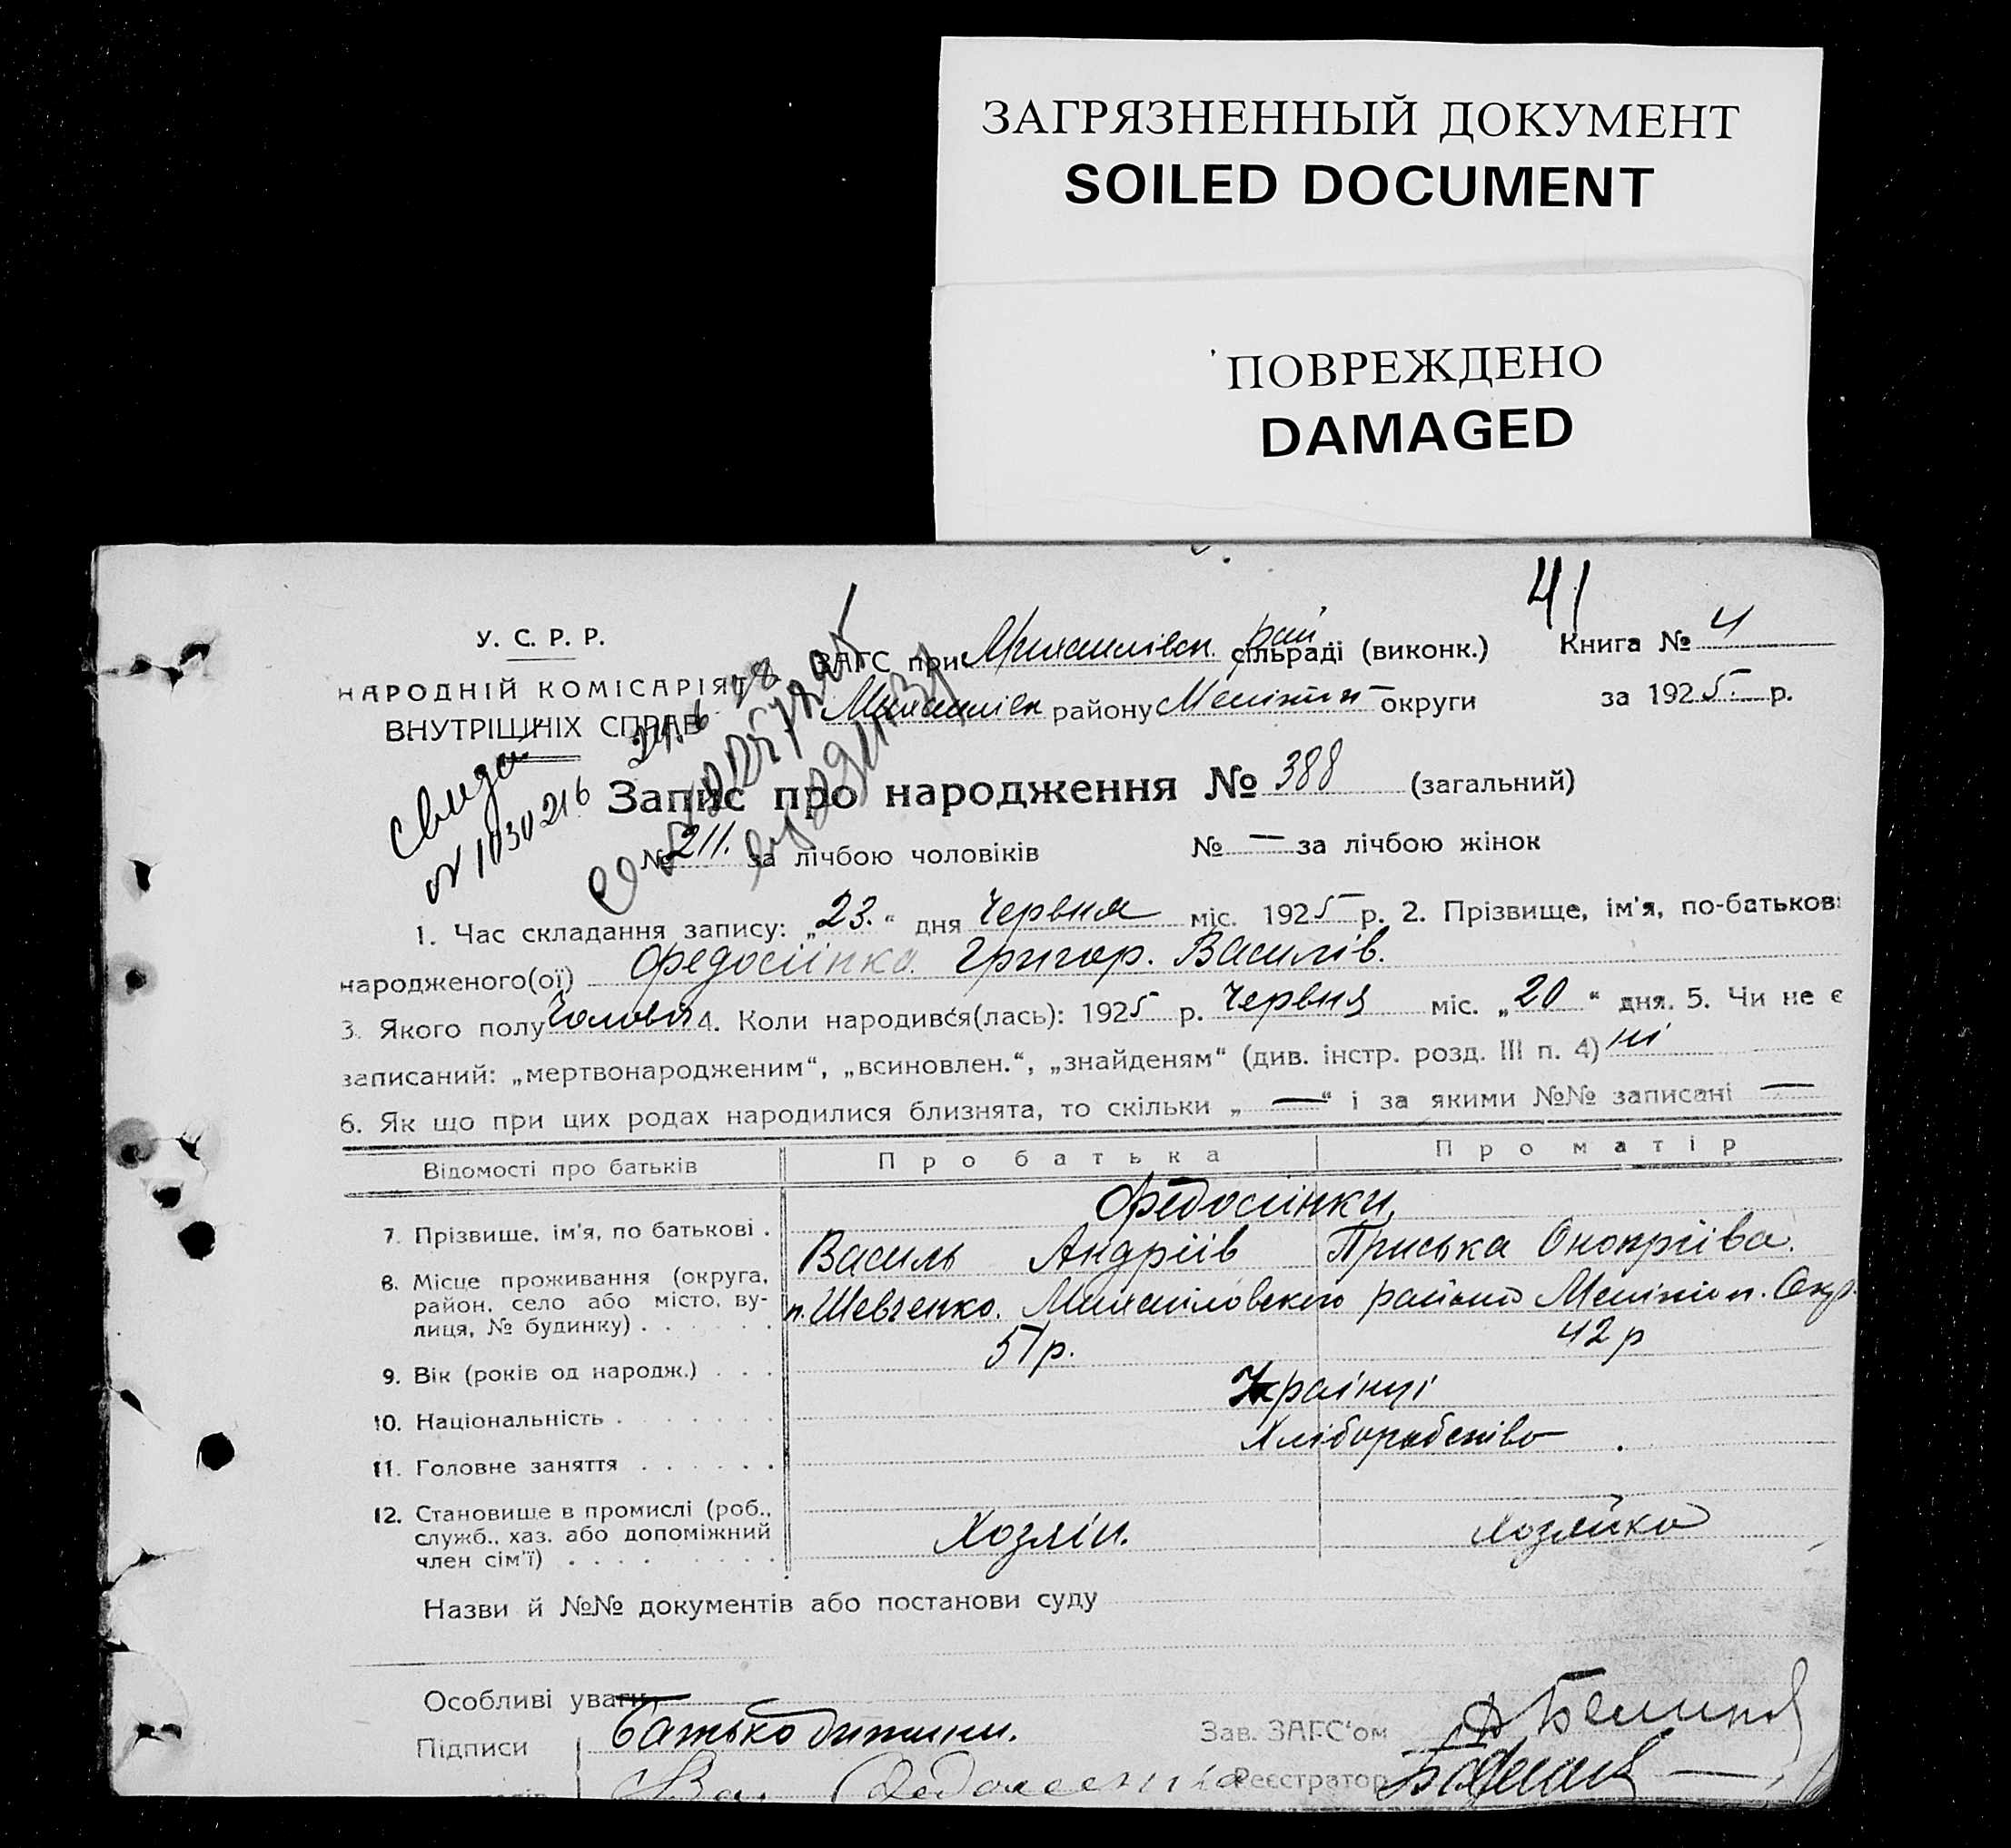 ЗАГРЯЗНЕННЫЙ ДОКУМЕНТ
SOILED DOCUMENT
ПОВРЕЖДЕНО
DAMAGED
41
У. С. Р. Р.
НАРОДНІЙ КОМІСАРІЯТ
ВНУТРІШНІХ СПРАВ
ЗАГС при Михайлівск. рай сільраді (виконк.) Книга № 4
Михайлівск району Мелітоп округи за 1925 р.
Запис про народження № 388 (загальний)
№ 211. за лічбою чоловіків № — за лічбою жінок
1. Час складання запису: „23." дня Червня міс. 1925 р. 2. Прізвище, ім'я, по-батькові
народженого(ої) Федосіінко. Григор. Василів.
3. Якого полу Чоловіч 4. Коли народився(лась): 1925 р. Червня міс. „20" дня. 5. Чи не є
записаний: „мертвонародженим“, „всиновлен.“, „знайденям“ (див. інстр. розд. III п. 4) ні
6. Як що при цих родах народилися близнята, то скільки „—“ і за якими №№ записані —
Відомості про батьків Про батька Про матір
7. Прізвище, ім'я, по батькові . Федосінки
Василь Андріів Приська Онопріїва.
8. Місце проживання (округа, район, село або місто, вулиця, № будинку) . . . . . . п. Шевченко. Михайловского району Мелітоп. Окр.
9. Вік (років од народж.) . . . 51 р. 42 р
10. Національність . . . . . . . Українці
11. Головне заняття . . . . . . Хліборобство
12. Становище в промислі (роб., служб., хаз. або допоміжний член сім'ї) . . . . . . . . . Хозяїн. Хозяйка
Назви й №№ документів або постанови суду
Особливі уваги
Підписи Батько дитини. Зав. ЗАГС'ом
Реєстратор